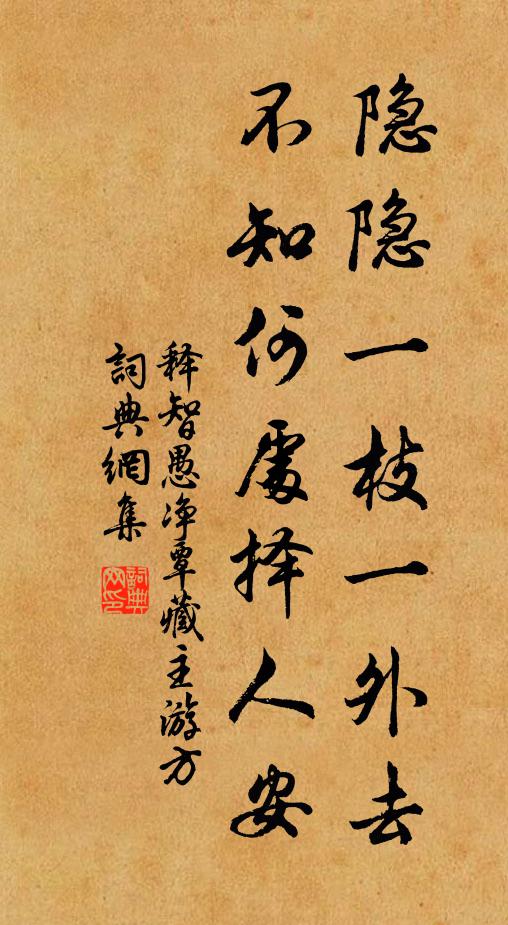 隐隐一枝一外去
不知何處择人安
释智愚净覃藏主游方
詞典網集
詞典
网印